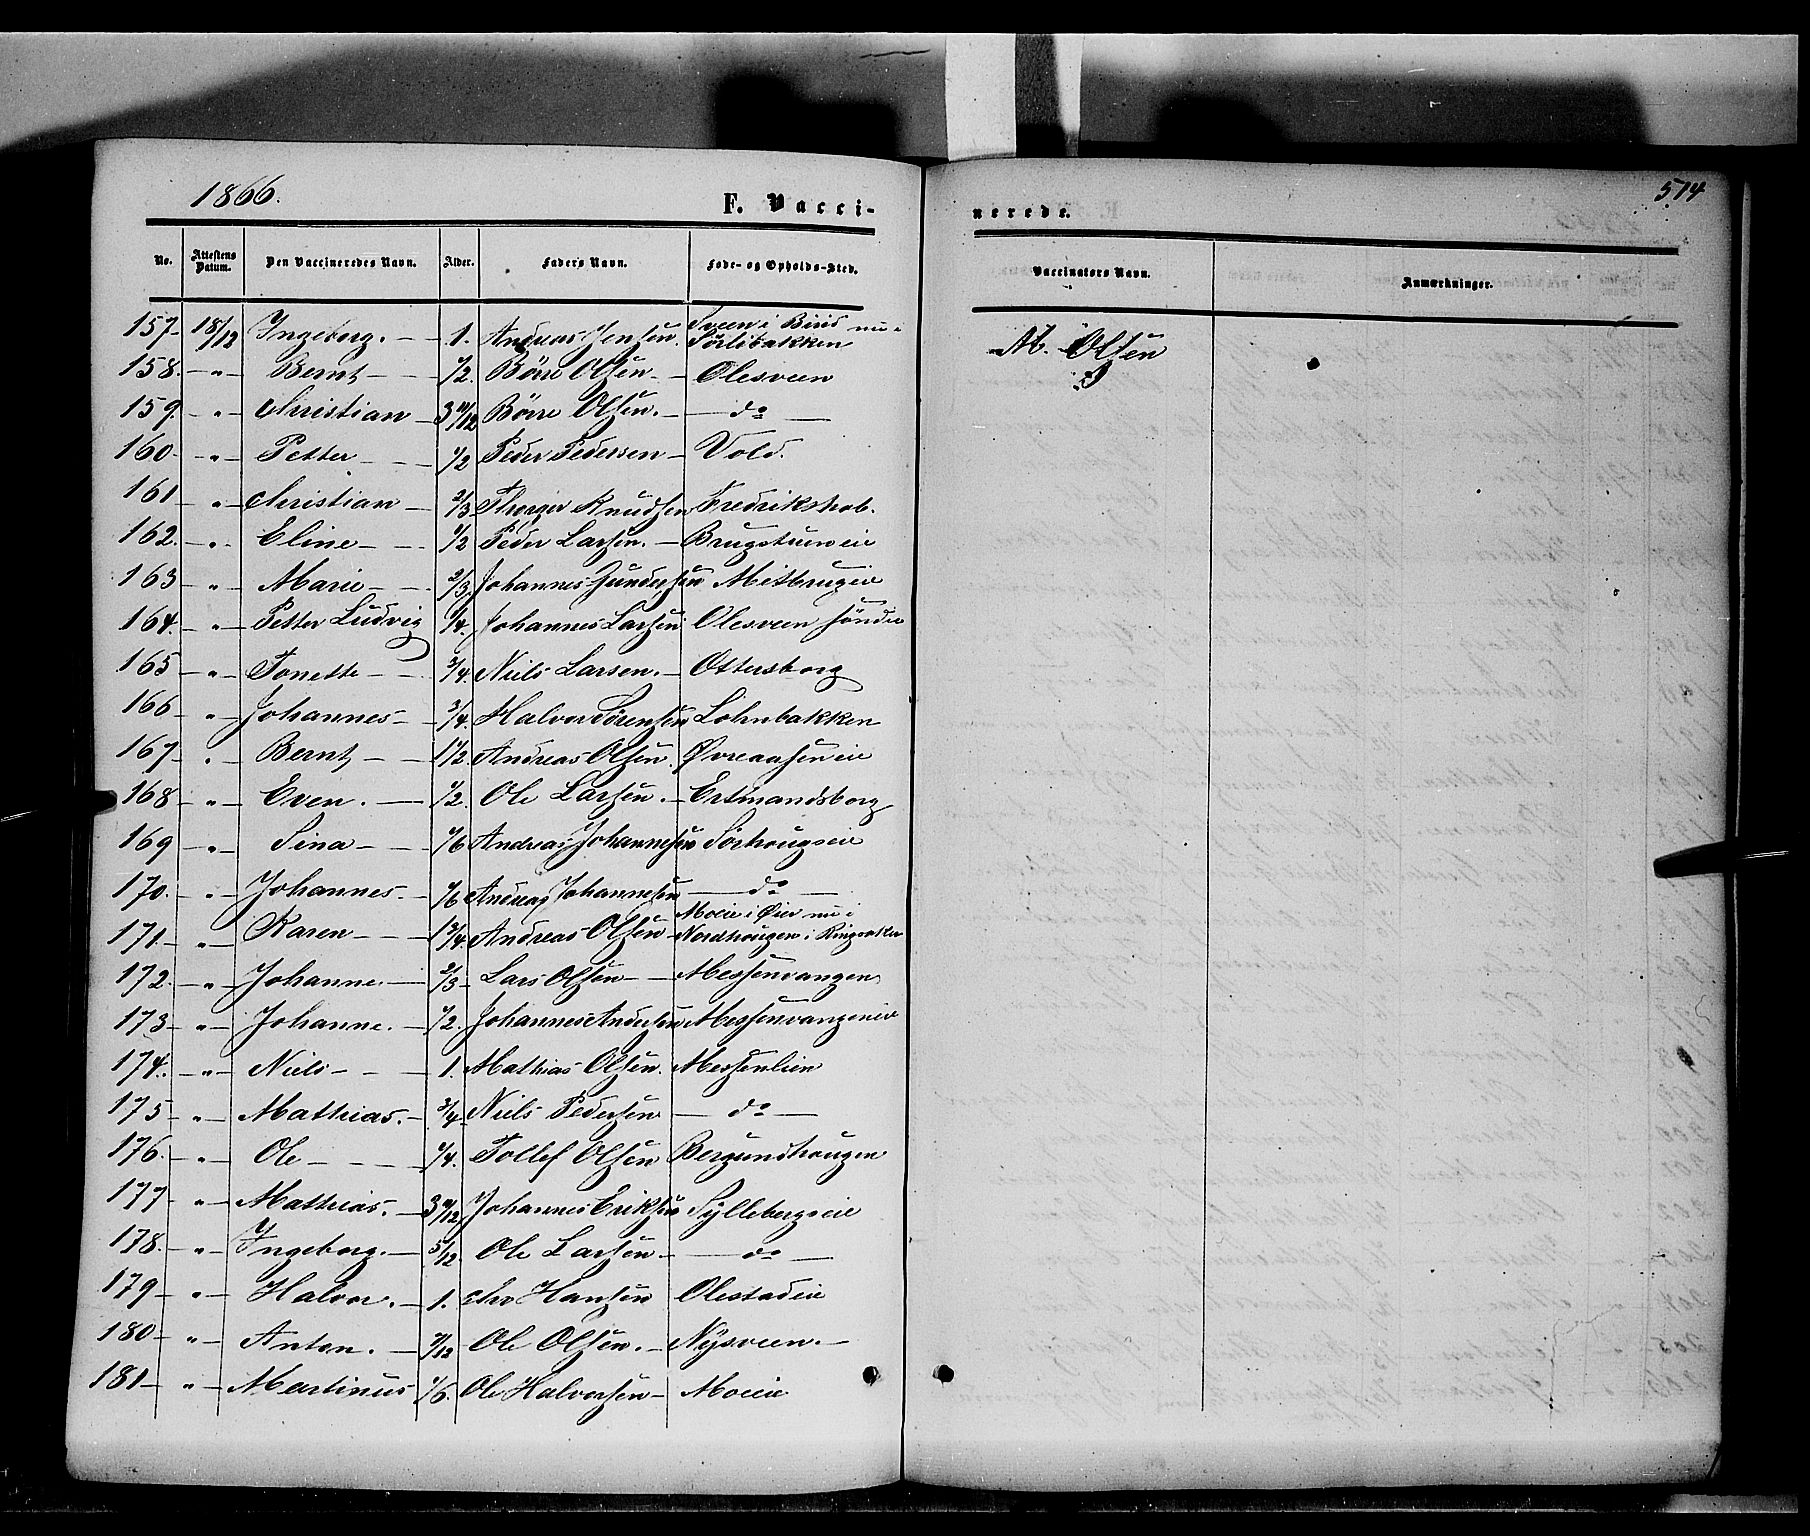 1866.
F. Vacci-
nerede.
574
No. Attestens Datum. Den Vaccineredes Navn. Alder. Faders Navn. Føde- og Opholds-Sted. Vaccinators Navn. Anmærkninger.
157 18/12 Ingeborg. 1. Andreas Jensen. Sveen i Biri nu i Sørlibakken M. Olsen
158. " Bernt 1/2. Börre Olsen Olesveen
159. " Christian 3 11/12 Börre Olsen. do
160. " Petter 1/2 Peder Pedersen Vold.
161 " Christian 2/3 Thorger Knudsen Fredrikshab.
162. " Eline 1/2 Peder Larsen. Brugstueneie
163 " Marie 2/3. Johannes Gundersen Mitbrugeie
164. " Petter Ludvig 1/4. Johannes Larsen Olesveen søndre
165 " Tonette 3/4. Niels Larsen. Ottersborg
166 " Johannes 3/4. Halvor Sørensen Lohnbakken
167 " Bernt 1 1/2. Andreas Olsen. Øvreaaseneie
168 " Even. 1/2. Ole Larsen. Ertmandsborg
169 " Sina 1/6 Andreas Johannesen Sørhougseie
170. " Johannes. 1/6 Andreas Johannesen do
171. " Karen 1 3/4. Andreas Olsen Moeie i Øier nu i Nordhougen i Ringsaker
172. " Johanne. 2/3 Lars Olsen Messenvangen
173 " Johanne. 1/2. Johannes Andersen Messenvangeneie
174. " Niels 1. Mathias Olsen. Messenlien
175 " Mathias. 3/4 Niels Pedersen do
176. " Ole 1/4. Tollef Olsen Bergundhougen
177 " Mathias. 3 11/12 Johannes Eriksen Syllebergseie
178. " Ingeborg. 5/12 Ole Larsen. do
179 " Halvor. 1. Chr Hansen Olestadeie
180 " Anton. 7/12 Ole Olsen. Nysveen.
181 " Martinus 1/6. Ole Halvorsen Moeie